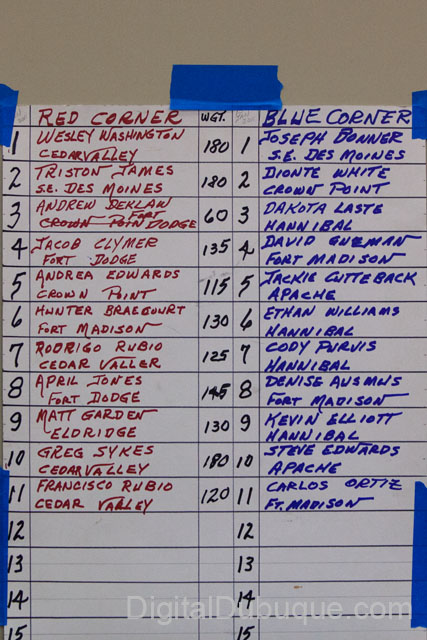 RED CORNER WGT. BLUE CORNER
1 WESLEY WASHINGTON 180 1 JOSEPH BONNER
CEDAR VALLEY S.E. DES MOINES
2 TRISTON JAMES 180 2 DIONTE WHITE
S.E. DES MOINES CROWN POINT
3 ANDREW 60 3 DAKOTA LASTE
CROWN POIN FORT DODGE HANNIBAL
4 JACOB CLYMER 135 4 DAVID GUZMAN
FORT DODGE FORT MADISON
5 ANDREA EDWARDS 115 5 JACKIE CUTTEBACK
CROWN POINT APACHE
6 HUNTER 130 6 ETHAN WILLIAMS
FORT MADISON HANNIBAL
7 RODRIGO RUBIO 125 7 CODY PURVIS
CEDAR VALLER HANNIBAL
8 APRIL JONES 145 8 DENISE
FORT DODGE FORT MADISON
9 MATT GARDEN 130 9 KEVIN ELLIOTT
ELDRIDGE HANNIBAL
10 GREG SYKES 180 10 STEVE EDWARDS
CEDAR VALLEY APACHE
11 FRANCISCO RUBIO 120 11 CARLOS ORTIZ
CEDAR VALLEY FT. MADISON
12 12
13 13
14 14
15 15
DigitalDubuque.com